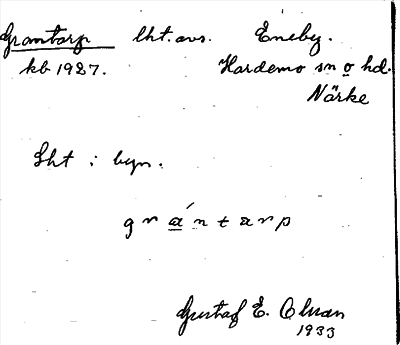 Grantorp lht. avs. Eneby.
kb 1927. Hardemo sn o hd.
Närke
Lht i byn.
g r a n t a r p
Gustaf E. Olsson
1933